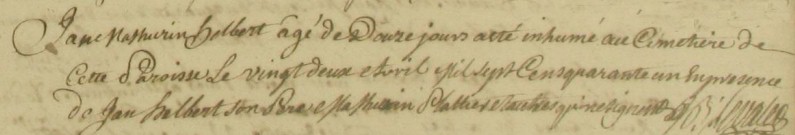 Jan Mathurin helbert agé de Douze jours a eté inhumé au Cimetiere de
Cette Paroisse Le vingt deux Avril Mil Sept Cens quarante un En presence
de Jan helbert Son Pere Mathurin et autres qui ne signent